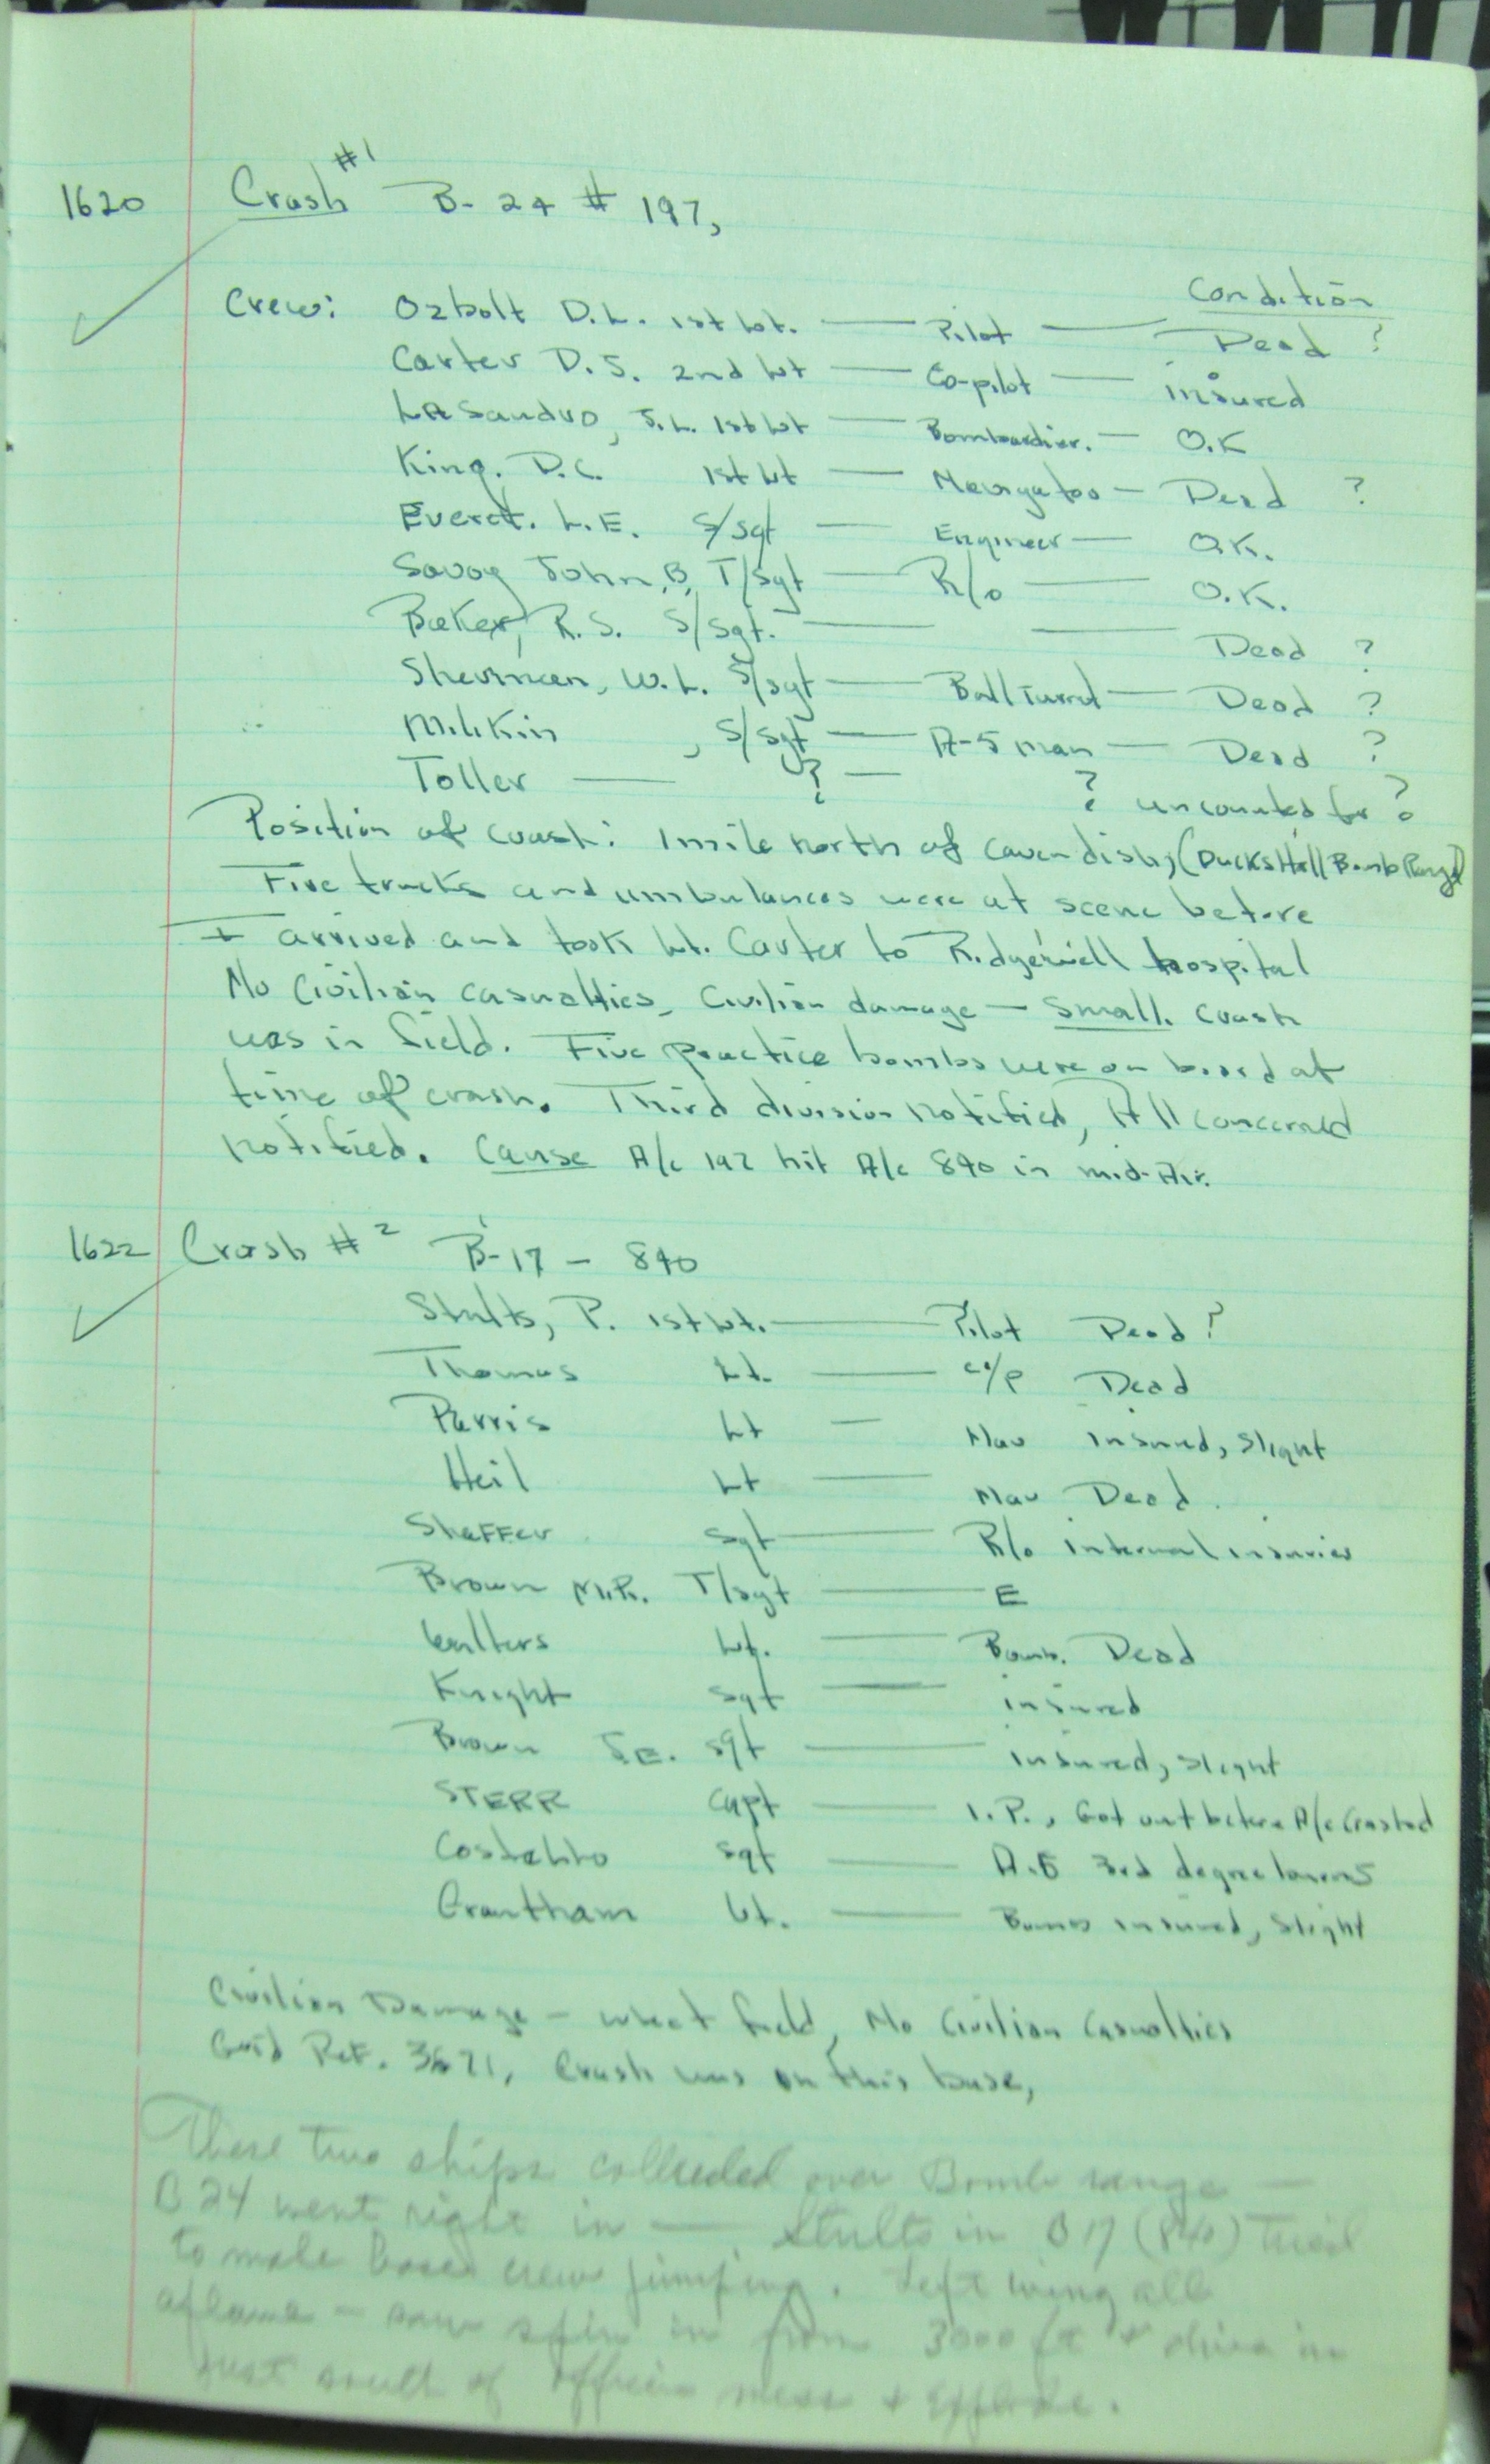 1620 Crash #1 B-24 # 197,
Condition
Crew: Ozbolt D.L. 1st Lt. — Pilot — Dead ?
Carter D.S. 2nd Lt — Co-pilot — injured
LaSandro, J.L. 1st Lt — Bombardier. — O.K
King. D.C. 1st Lt — Navigator — Dead ?
Everet. L.E. S/Sgt — Engineer — O.K.
Savoy John, B, T/Sgt — R/o — O.K.
Baker, R.S. S/Sgt. — — Dead ?
Sherman, W.L. S/Sgt — Ball Turret — Dead ?
Milikin , S/Sgt — A-5 man — Dead ?
Toller — ? — ? uncounted for ?
Position of crash: 1 mile north of Cavendish, (Ducks Hall Bomb Range)
Fire trucks and ambulances were at scene before
I arrived and took Lt. Carter to Ridgewell hospital
No Civilian casualties, Civilian damage — small. Crash
was in field. Five practice bombs were on board at
time of crash. Third division notified, All concerned
notified. Cause A/c 197 hit A/c 840 in mid-Air.
1622 Crash #2 B-17 - 840
Stults, P. 1st Lt. — Pilot Dead ?
Thomas Lt. — c/p Dead
Parris Lt — Nav injured, Slight
Heil Lt — Nav Dead.
Shaffer Sgt — R/o internal injuries
Brown M.R. T/Sgt — E
Walters Lt. — Bomb. Dead
Knight Sgt — injured
Brown J.E. Sgt — injured, slight
STERR Capt — I.P., Got out before A/c Crashed
Costalito Sgt — A.E 3rd degree burns
Grantham Lt. — injured, Slight
Civilian Damage - wheat field, No Civilian Casualties
Grid Ref. 3671, Crash was on this base,
These two ships collided over Bomb range —
B 24 went right in — Stults in B 17 (840) tried
to make base crew jumping. Left wing all
aflame - saw spin in from 3000 ft + dive in
just south of officers mess + explode.